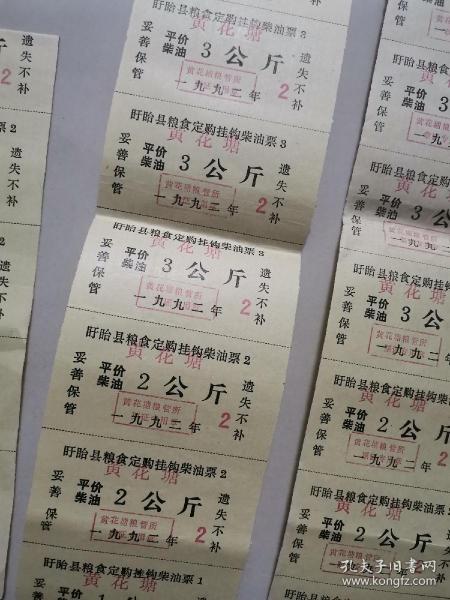 盱眙县粮食定购挂钩柴油票3
黄花塘
妥善保管
平价柴油 3公斤
遗失不补
黄花塘粮管所
一九九二年
2
盱眙县粮食定购挂钩柴油票3
黄花塘
妥善保管
平价柴油 3公斤
遗失不补
黄花塘粮管所
一九九二年
2
盱眙县粮食定购挂钩柴油票3
黄花塘
妥善保管
平价柴油 3公斤
遗失不补
黄花塘粮管所
一九九二年
2
盱眙县粮食定购挂钩柴油票2
黄花塘
妥善保管
平价柴油 2公斤
遗失不补
黄花塘粮管所
一九九二年
2
盱眙县粮食定购挂钩柴油票2
黄花塘
妥善保管
平价柴油 2公斤
遗失不补
黄花塘粮管所
一九九二年
2
盱眙县粮食定购挂钩柴油票1
黄花塘
平价
遗
票3
遗失不补
2
油票2
遗失不补
2
盱眙县粮食定购
黄花塘
妥善保管
平价柴油 3公
黄花塘粮管所
一九九
盱眙县粮食定购挂
黄花塘
妥善保管
平价柴油 3公
黄花塘粮管所
一九九二
盱眙县粮食定购挂钩
黄花塘
妥善保管
平价柴油 3公
黄花塘粮管所
一九九二年
盱眙县粮食定购挂钩柴
黄花塘
妥善保管
平价柴油 2公斤
黄花塘粮管所
一九九二年
盱眙县粮食定购挂钩柴油
黄花塘
妥善保管
平价柴油 2公斤
黄花塘粮管所
一九九二年
孔夫子旧书网
www.kongfz.com